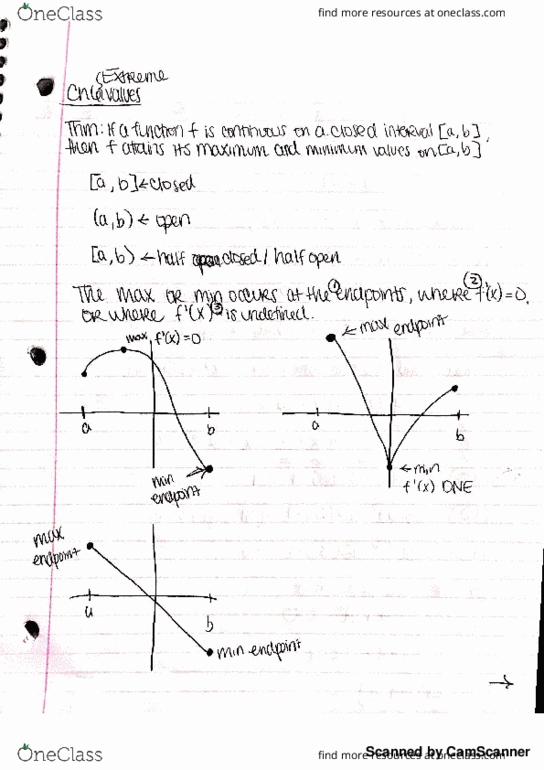 OneClass
find more resources at oneclass.com
(Extreme
Values
Thm: If a function f is continuous on a closed interval [a, b],
then f attains its maximum and minimum values on [a, b]
[a, b] ← closed
(a, b) ← open
[a, b) ← half closed / half open
The max or min occurs at the ① endpoints, where ② f'(x)=0,
or where f'(x) ③ is undefined.
max f'(x)=0
← max endpoint
a
b
a
b
min
endpoint
← min
f'(x) DNE
max
endpoint
a
b
min endpoint
→
Scanned by CamScanner
OneClass
find more resources at oneclass.com